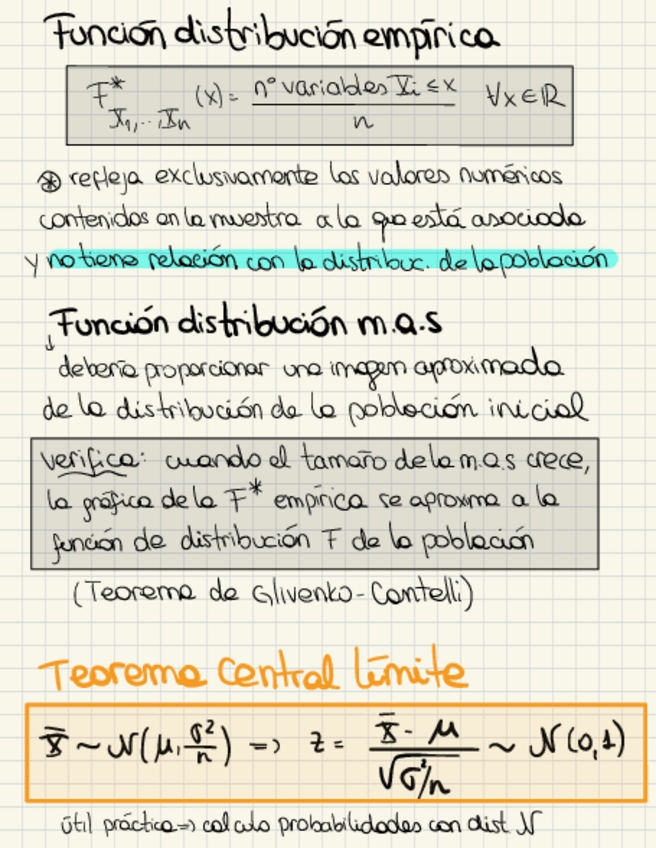 Función distribución empírica
F*_{X₁,...,Xn} (x) = nº variables Xi ≤ x / n ∀x ∈ ℝ
⊛ refleja exclusivamente los valores numéricos
contenidos en la muestra a la que está asociada
y no tiene relación con la distribuc. de la población
Función distribución m.a.s
↓ debería proporcionar una imagen aproximada
de la distribución de la población inicial
verifica: cuando el tamaño de la m.a.s crece,
la gráfica de la F* empírica se aproxima a la
función de distribución F de la población
(Teorema de Glivenko-Cantelli)
Teorema Central Límite
X̄ ~ N(μ, σ²/n) => z = X̄ - μ / √σ²/n ~ N(0,1)
útil práctica => calculo probabilidades con dist N